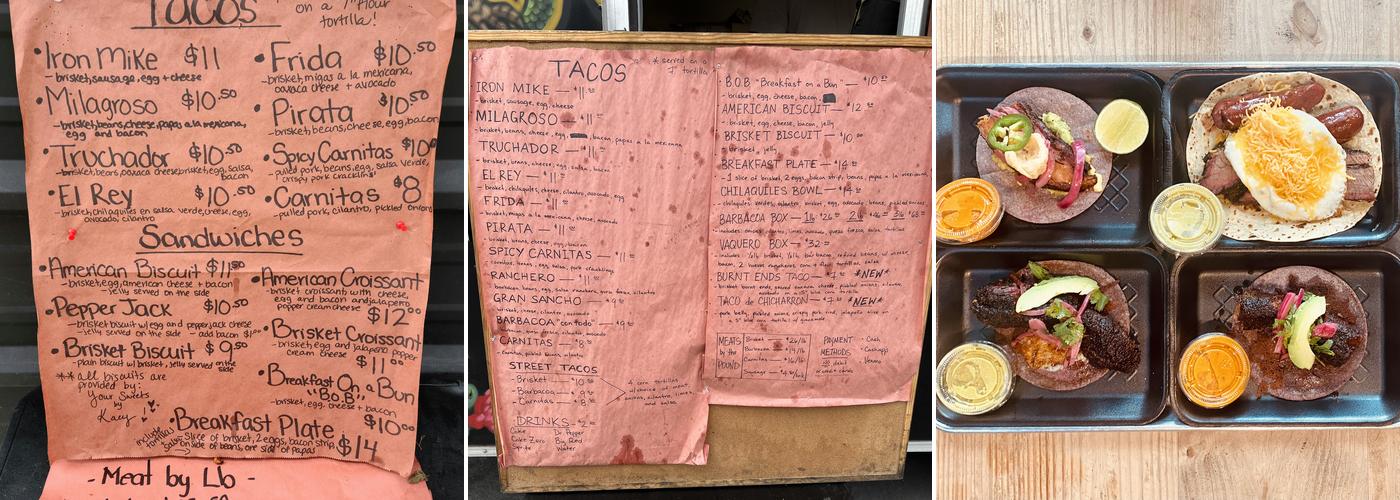 Tacos
on a 7" flour
tortilla!
• Iron Mike $11
- brisket, sausage, egg + cheese
• Milagroso $10.50
- brisket, beans, cheese, papas a la mexicana,
egg and bacon
• Truchador $10.50
- brisket, beans, oaxaca cheese, brisket, egg, salsa,
bacon
• El Rey $10.50
- brisket, chilaquiles en salsa verde, cheese, egg,
avocado, cilantro
• Frida $10.50
- brisket, migas a la mexicana,
oaxaca cheese + avocado
• Pirata $10.50
- brisket, beans, cheese, egg, bacon
• Spicy Carnitas $10
- pulled pork, beans, egg, salsa verde,
crispy pork cracklins
• Carnitas $8
- pulled pork, cilantro, pickled onions
Sandwiches
• American Biscuit $11.50
- brisket, egg, american cheese + bacon
- jelly served on the side
• Pepper Jack $10.50
- brisket biscuit w/ egg and pepper jack cheese
- jelly served on the side - add bacon $1.00
• Brisket Biscuit $9.50
- plain biscuit w/ brisket, jelly served on the
side
** all biscuits are
provided by:
Your Sweets
by
Kacy!
• American Croissant
- brisket croissant with cheese,
egg and bacon and jalapeño
pepper cream cheese $12.00
• Brisket Croissant
- brisket, egg and jalapeño pepper
cream cheese $11.00
• Breakfast On a Bun
"B.o.B"
- brisket, egg, cheese + bacon
$10.00
• Breakfast Plate $14
includes tortillas
salsa
slice of brisket, 2 eggs, bacon strip,
on side of beans, one side of papas
- Meat by Lb -
TACOS
* served on a
7" tortilla
IRON MIKE — $11.00
- brisket, sausage, egg, cheese
MILAGROSO — $11.00
- brisket, beans, cheese, egg, bacon, papas a la mexicana
TRUCHADOR — $11.00
- brisket, beans, cheese, egg, salsa, bacon
EL REY — $11.00
- brisket, chilaquiles, cheese, cilantro, avocado, egg
FRIDA — $11.00
- brisket, migas a la mexicana, cheese, avocado
PIRATA — $11.00
- brisket, beans, cheese, egg, bacon
SPICY CARNITAS — $11.00
- carnitas, beans, egg, salsa, pork cracklings
RANCHERO — $11.00
- barbacoa, beans, egg, salsa ranchera, queso fresco, cilantro
GRAN SANCHO — $9.00
- brisket, cheese, cilantro, avocado
BARBACOA "con todo" — $9.00
CARNITAS — $8.00
- carnitas, pickled onions, cilantro
STREET TACOS
- Brisket — $10.00
- Barbacoa — $9.00
- Carnitas — $8.00
4 corn tortillas
w/ choice of meat,
onions, cilantro, limes,
and salsa
DRINKS — $2.00
Coke
Coke Zero
Sprite
Dr. Pepper
Big Red
Water
B.O.B "Breakfast on a Bun" — $10.50
- brisket, egg, cheese, bacon
AMERICAN BISCUIT — $12.00
- brisket, egg, cheese, bacon, jelly
BRISKET BISCUIT — $10.00
- brisket, jelly
BREAKFAST PLATE — $14.00
- 1 slice of brisket, 2 eggs, bacon strip, beans, papas a la mexicana,
CHILAQUILES BOWL — $14.00
- chilaquiles verdes, cilantro, brisket, egg, avocado, beans, pickled onions
BARBACOA BOX — 1 lb $26.00 2 lb $46.00 3 lb $68.00
- includes: onions, cilantro, limes, avocado, queso fresco, salsa, tortillas
VAQUERO BOX — $32.00
BURNT ENDS TACO — $7.00 *NEW*
TACO de CHICHARRON — $7.00 *NEW*
MEATS
by the
POUND
Brisket
Barbacoa
Carnitas
Sausage
PAYMENT
METHODS
· Cash
· Cashapp
· Venmo
debit
or credit cards